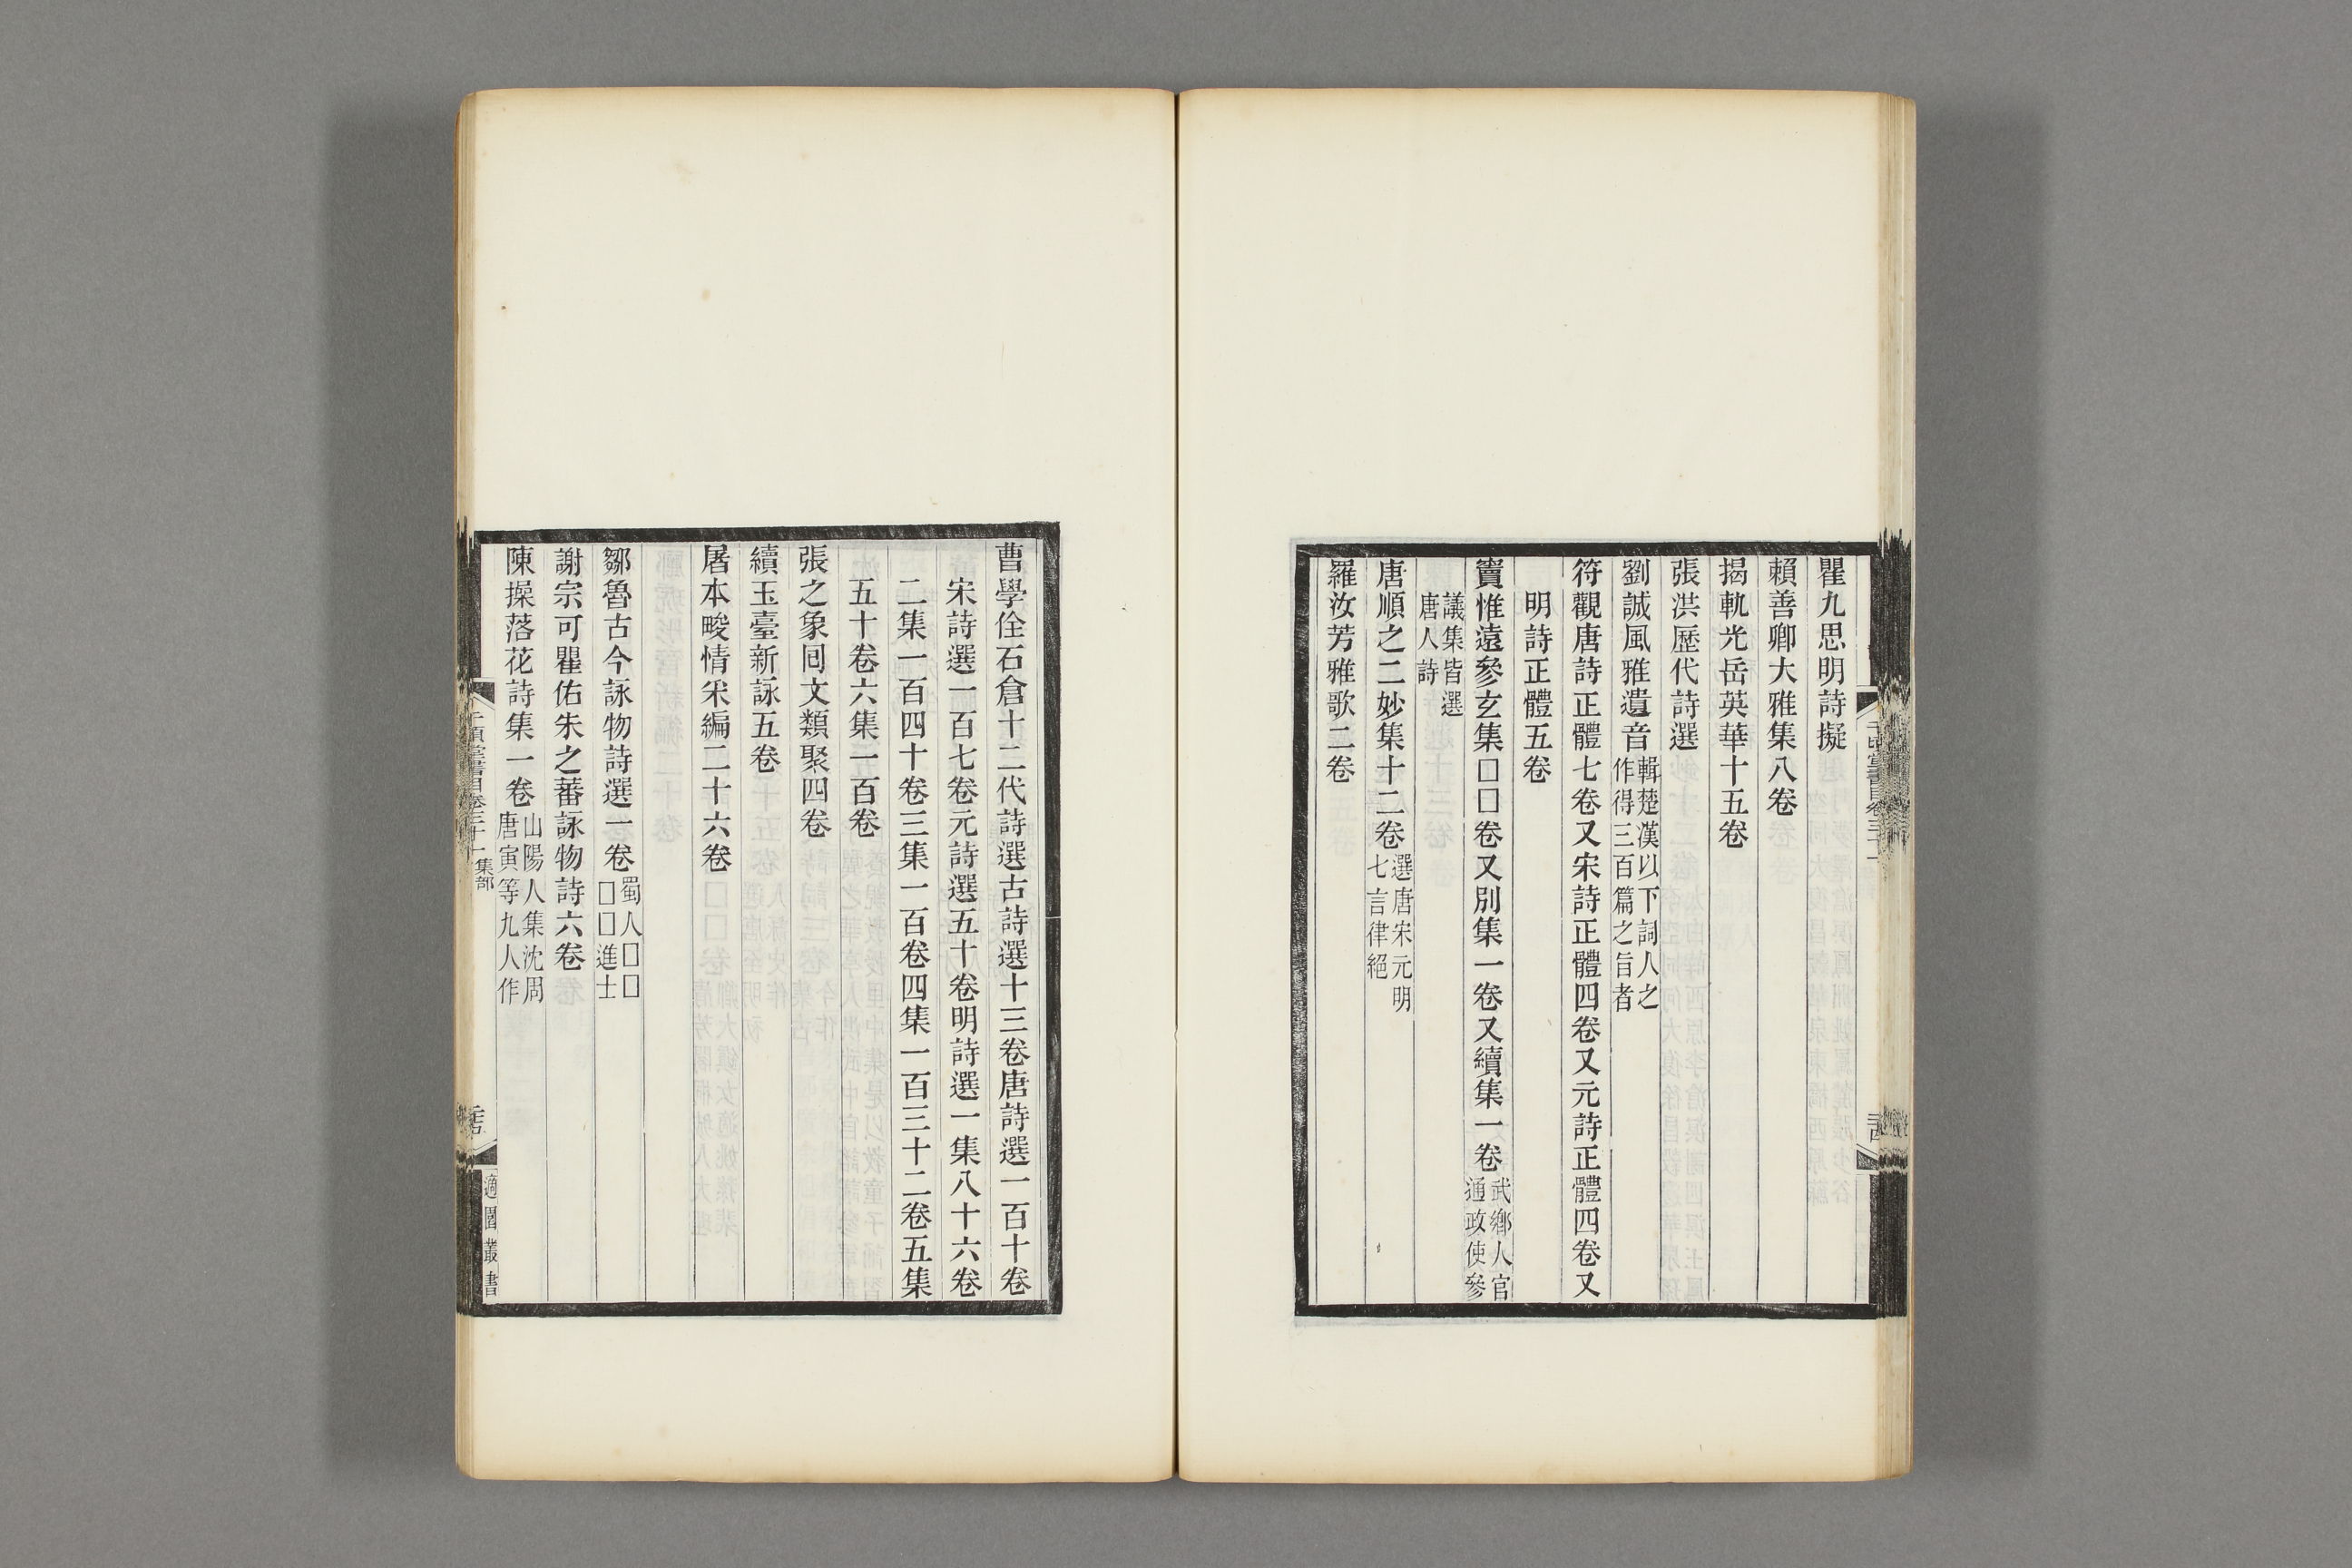 瞿九思明詩擬
賴善卿大雅集八卷
揭軌光岳英華十五卷
張洪歷代詩選
劉誠風雅遺音輯楚漢以下詞人之作得三百篇之旨者
符觀唐詩正體七卷又宋詩正體四卷又元詩正體四卷又
明詩正體五卷
竇惟遠參玄集□□卷又別集一卷又續集一卷武鄉人官通政使參
議集皆選唐人詩
唐順之二妙集十二卷選唐宋元明七言律絕
羅汝芳雅歌二卷
曹學佺石倉十二代詩選古詩選十三卷唐詩選一百十卷
宋詩選一百七卷元詩選五十卷明詩選一集八十六卷
二集一百四十卷三集一百卷四集一百三十二卷五集
五十卷六集一百卷
張之象囘文類聚四卷
續玉臺新詠五卷
屠本畯情采編二十六卷
鄒魯古今詠物詩選一卷蜀人□□□□進士
謝宗可瞿佑朱之蕃詠物詩六卷
陳操落花詩集一卷山陽人集沈周唐寅等九人作
千頃堂書目卷三十一集部
適園叢書